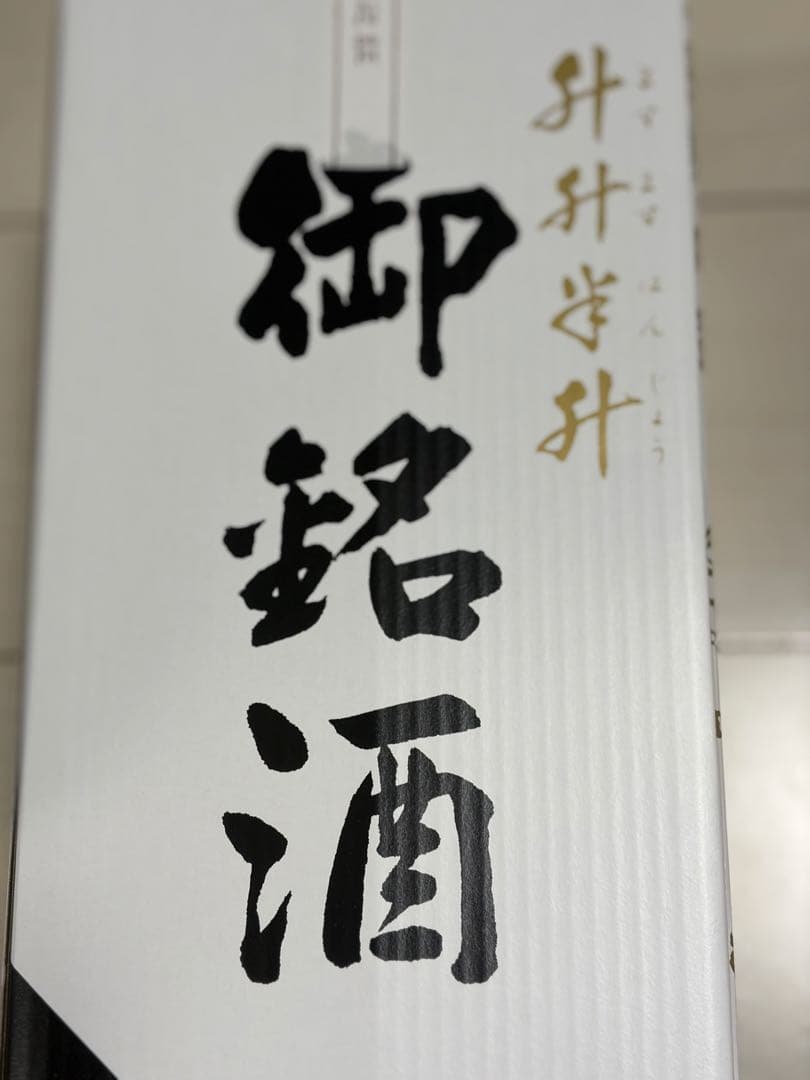 升升半升
ます ます はんじょう
御銘酒